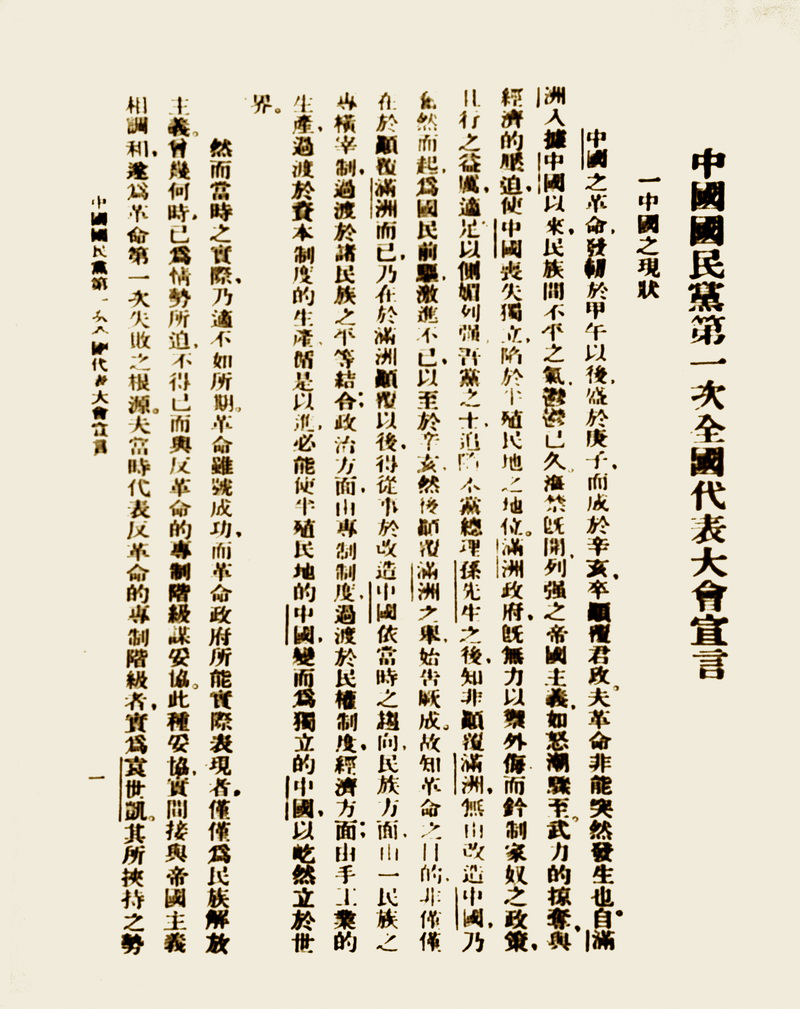 中國國民黨第一次全國代表大會宣言
一中國之現狀
中國之革命，發軔於甲午以後，盛於庚子，而成於辛亥，卒顛覆君政。夫革命非能突然發生也。自滿
洲入據中國以來，民族間不平之氣，鬱鬱已久。海禁既開，列强之帝國主義，如怒潮驟至。武力的掠奪，與
經濟的壓迫，使中國喪失獨立，陷於半殖民地之地位。滿洲政府，既無力以禦外侮，而鈐制家奴之政策，
且行之益厲，適足以側媚列强。吾黨之士，追隨本黨總理孫先生之後，知非顛覆滿洲，無由改造中國，乃
奮然而起，爲國民前驅，激進不已，以至於辛亥，然後顛覆滿洲之舉，始告厥成。故知革命之目的，非僅僅
在於顛覆滿洲而已，乃在於滿洲顛覆以後，得從事於改造中國。依當時之趨向，民族方面，由一民族之
專橫宰制，過渡於諸民族之平等結合；政治方面，由專制制度，過渡於民權制度；經濟方面，由手工業的
生產，過渡於資本制度的生產。循是以進，必能使半殖民地的中國，變而爲獨立的中國，以屹然立於世
界。
然而當時之實際，乃適不如所期。革命雖號成功，而革命政府所能實際表現者，僅僅爲民族解放
主義。曾幾何時，已爲情勢所迫，不得已而與反革命的專制階級謀妥協。此種妥協，實間接與帝國主義
相調和，遂爲革命第一次失敗之根源。夫當時代表反革命的專制階級者，實爲袁世凱。其所挾持之勢
中國國民黨第一次全國代表大會宣言
一